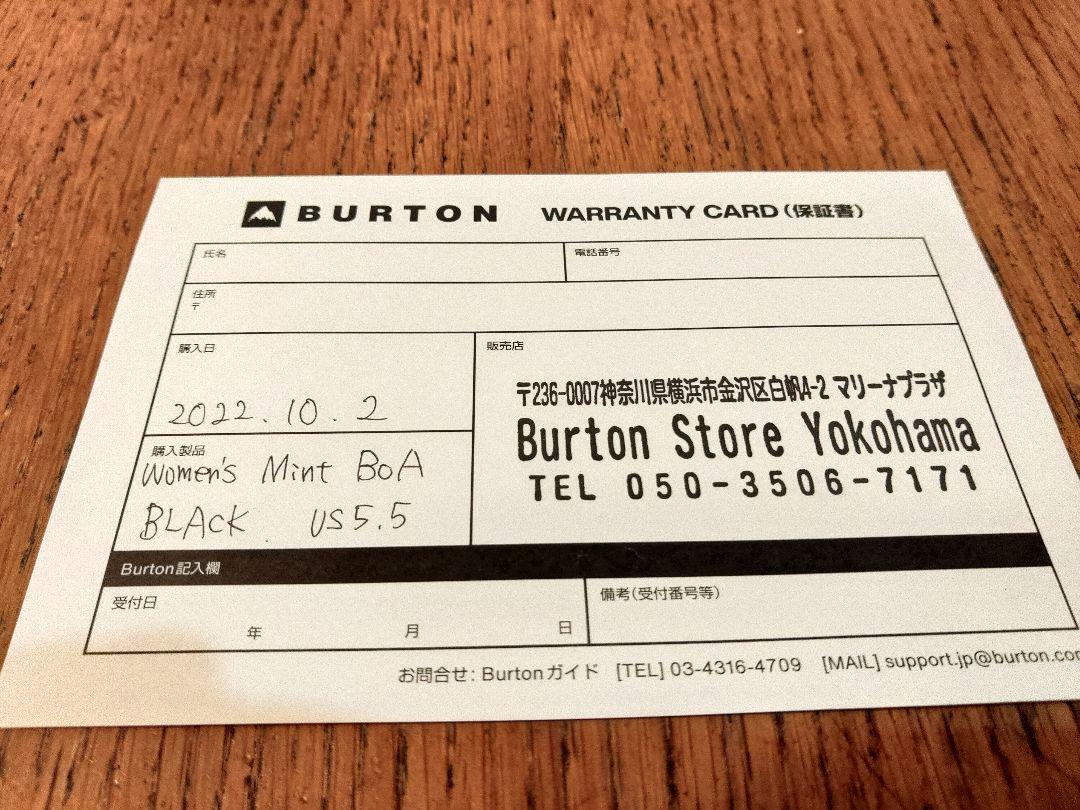 BURTON WARRANTY CARD(保証書)
氏名
電話番号
住所
〒
購入日
2022.10.2
販売店
〒236-0007神奈川県横浜市金沢区白帆4-2 マリーナプラザ
Burton Store Yokohama
TEL 050-3506-7171
購入製品
Women's Mint BOA
BLACK. US5.5
Burton記入欄
受付日
年 月 日
備考(受付番号等)
お問合せ: Burtonガイド [TEL] 03-4316-4709 [MAIL] support.jp@burton.com